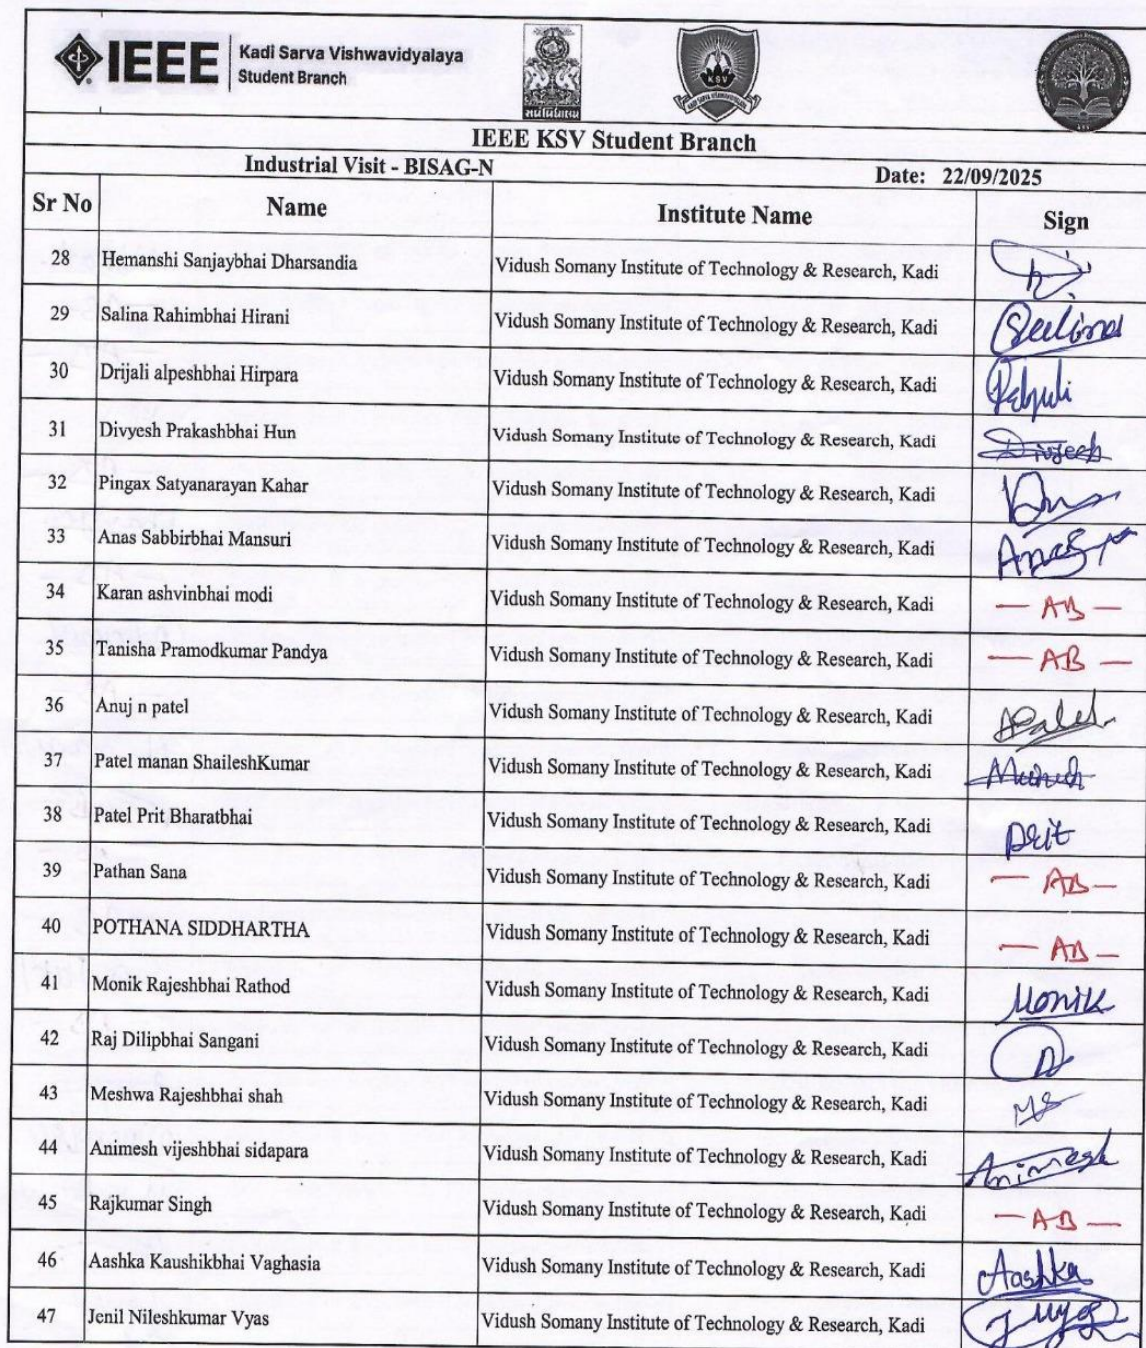 IEEE Kadi Sarva Vishwavidyalaya
Student Branch
KSV
IEEE KSV Student Branch
Industrial Visit - BISAG-N Date: 22/09/2025
Sr No Name Institute Name Sign
28 Hemanshi Sanjaybhai Dharsandia Vidush Somany Institute of Technology & Research, Kadi
29 Salina Rahimbhai Hirani Vidush Somany Institute of Technology & Research, Kadi
30 Drijali alpeshbhai Hirpara Vidush Somany Institute of Technology & Research, Kadi
31 Divyesh Prakashbhai Hun Vidush Somany Institute of Technology & Research, Kadi Divyesh
32 Pingax Satyanarayan Kahar Vidush Somany Institute of Technology & Research, Kadi
33 Anas Sabbirbhai Mansuri Vidush Somany Institute of Technology & Research, Kadi Anas
34 Karan ashvinbhai modi Vidush Somany Institute of Technology & Research, Kadi — AB —
35 Tanisha Pramodkumar Pandya Vidush Somany Institute of Technology & Research, Kadi — AB —
36 Anuj n patel Vidush Somany Institute of Technology & Research, Kadi
37 Patel manan ShaileshKumar Vidush Somany Institute of Technology & Research, Kadi
38 Patel Prit Bharatbhai Vidush Somany Institute of Technology & Research, Kadi Prit
39 Pathan Sana Vidush Somany Institute of Technology & Research, Kadi — AB —
40 POTHANA SIDDHARTHA Vidush Somany Institute of Technology & Research, Kadi — AB —
41 Monik Rajeshbhai Rathod Vidush Somany Institute of Technology & Research, Kadi Monik
42 Raj Dilipbhai Sangani Vidush Somany Institute of Technology & Research, Kadi
43 Meshwa Rajeshbhai shah Vidush Somany Institute of Technology & Research, Kadi MS
44 Animesh vijeshbhai sidapara Vidush Somany Institute of Technology & Research, Kadi Animesh
45 Rajkumar Singh Vidush Somany Institute of Technology & Research, Kadi — AB —
46 Aashka Kaushikbhai Vaghasia Vidush Somany Institute of Technology & Research, Kadi Aashka
47 Jenil Nileshkumar Vyas Vidush Somany Institute of Technology & Research, Kadi